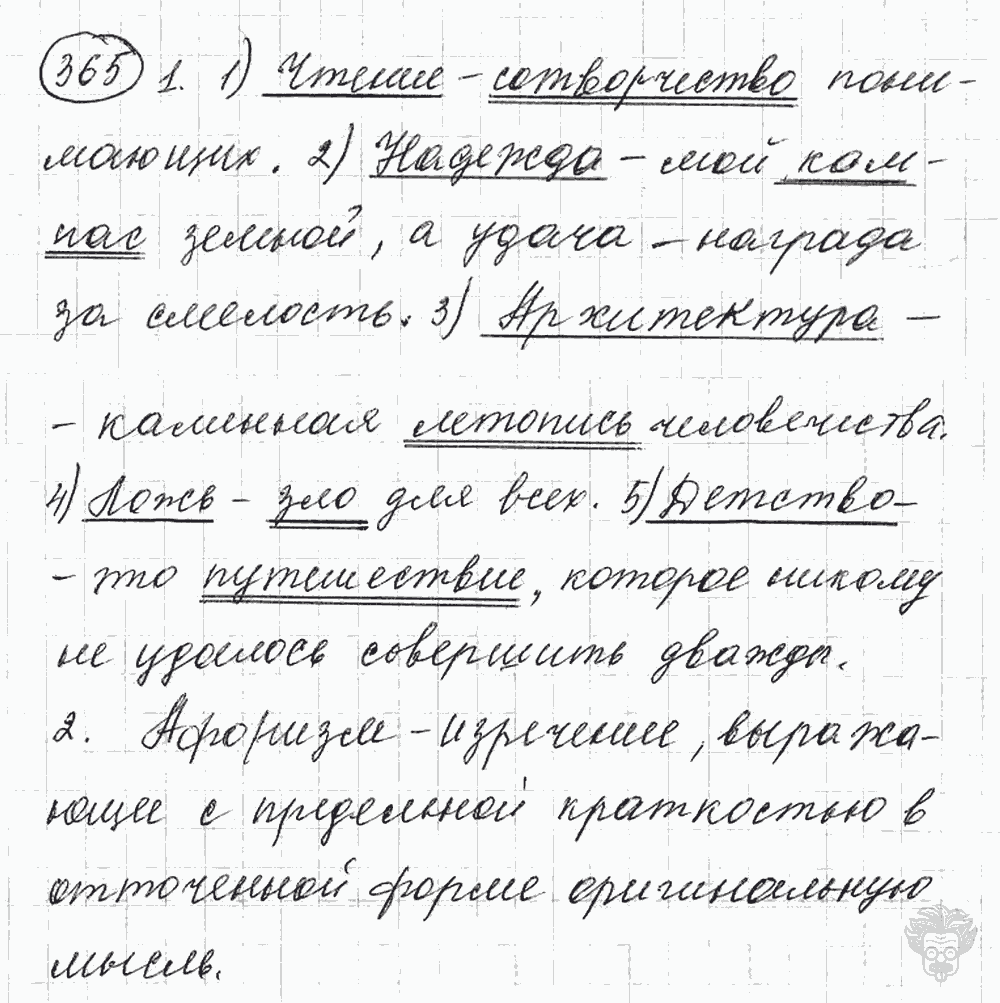 365 1. 1) Чтение – сотворчество пони-
мающих. 2) Надежда – мой ком-
пас земной, а удача – награда
за смелость. 3) Архитектура –
– каменная летопись человечества.
4) Ложь – зло для всех. 5) Детство –
– это путешествие, которое никому
не удалось совершить дважды.
2. Афоризм – изречение, выража-
ющее с предельной краткостью в
отточенной форме оригинальную
мысль.